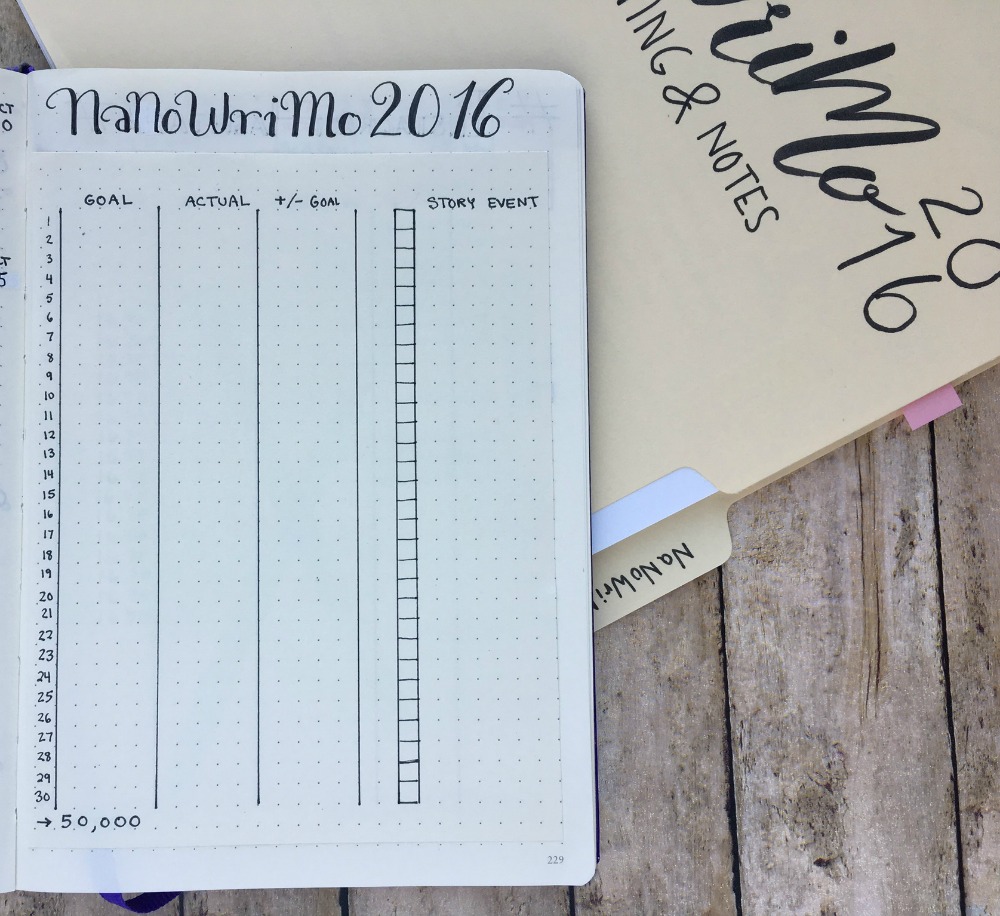 NaNoWriMo 2016
GOAL ACTUAL +/- GOAL STORY EVENT
1
2
3
4
5
6
7
8
9
10
11
12
13
14
15
16
17
18
19
20
21
22
23
24
25
26
27
28
29
30
→ 50,000
229
WriMo
& NOTES
20
16
NaNoWri